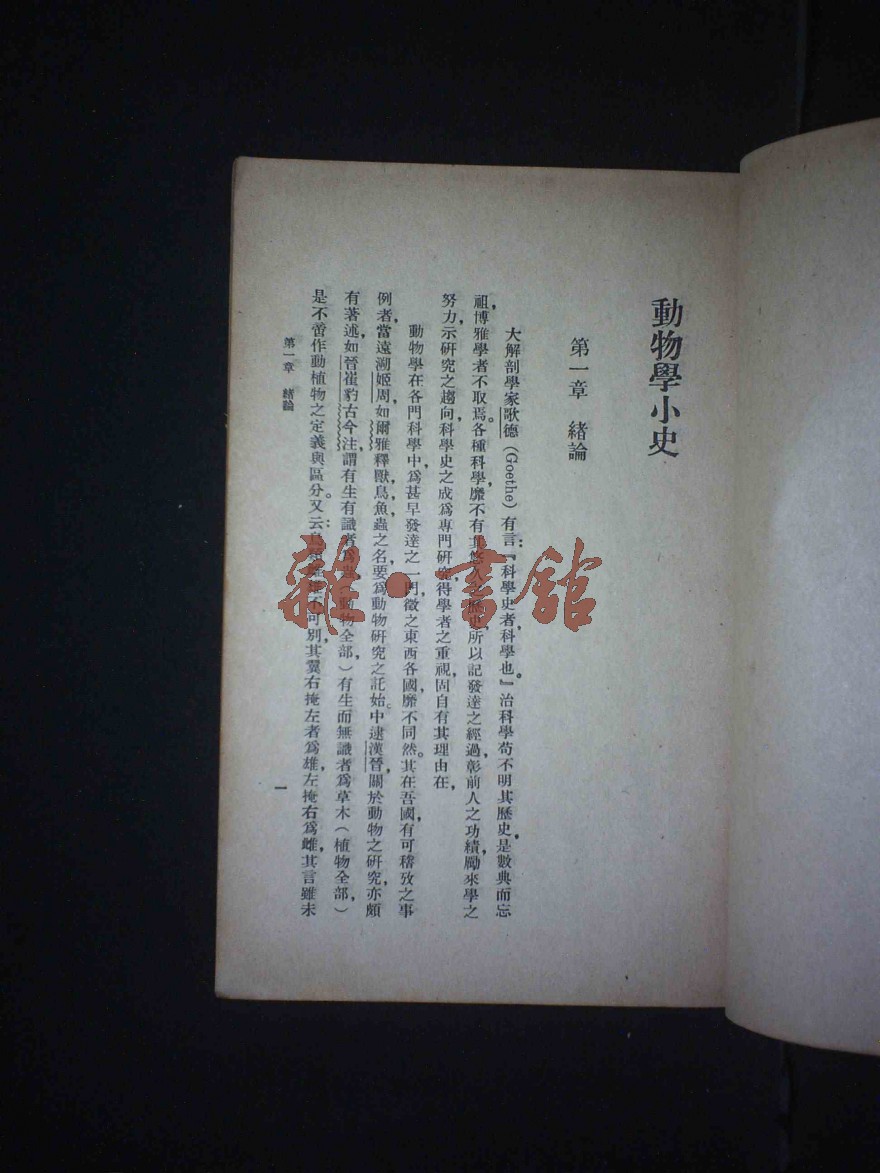 動物學小史
第一章　緒論
大解剖學家歌德（Goethe）有言：『科學史者，科學也。』治科學苟不明其歷史，是數典而忘
祖，博雅學者不取焉。各種科學，靡不有其悠久之歷史，所以記發達之經過，彰前人之功績，勵來學之
努力，示研究之趨向，科學史之成爲專門研究，得學者之重視，固自有其理由在，
動物學在各門科學中，爲甚早發達之一門，徵之東西各國，靡不同然。其在吾國，有可稽攷之事
例者，當遠溯姬周，如爾雅釋獸，鳥，魚，蟲之名，要爲動物研究之託始。中逮漢晉，關於動物之研究，亦頗
有著述，如晉崔豹古今注，謂有生有識者爲蟲（動物全部，）有生而無識者爲草木（植物全部，）
是不啻作動植物之定義與區分。又云：鳥類雌雄不可別，其翼右掩左者爲雄，左掩右爲雌，其言雖未
第一章　緒論
一
雜·書館